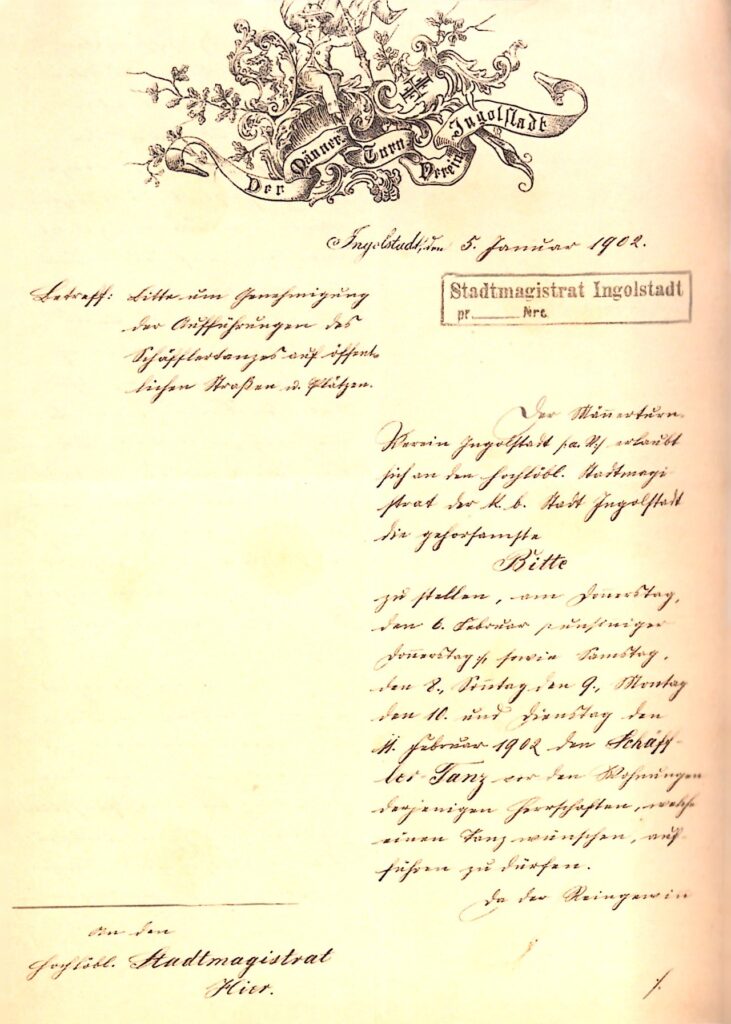 Der Männer Turn Verein Ingolstadt
Ingolstadt, den 5. Januar 1902.
Stadtmagistrat Ingolstadt
pr. Nro
Betreff: Bitte um Genehmigung
der Aufführungen des
Schäfflertanzes auf öffent-
lichen Straßen u. Plätzen.
Der Männerturn-
Verein Ingolstadt (a. V.) erlaubt
sich an den hochlöbl. Stadtmagi
strat der k. b. Stadt Ingolstadt
die gehorsamste
Bitte
zu stellen, am Donerstag,
den 6. Februar /: unsiniger
Donerstag :/, sowie Samstag,
den 8., Sonntag den 9., Montag
den 10. und Dienstag den
11. Februar 1902 den Schäff-
ler-Tanz vor den Wohnungen
derjenigen Herrschaften, welche
einen Tanz wünschen, auf-
führen zu dürfen.
Da der Reingewin
An den
hochlöbl. Stadtmagistrat
Hier.